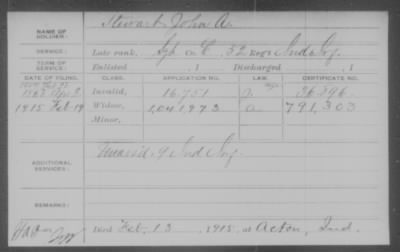 NAME OF SOLDIER: Stewart, John A.
SERVICE: Late rank, Co. E, 52 Reg't Ind. Inf.
TERM OF SERVICE: Enlisted , 1 Discharged , 1
DATE OF FILING. CLASS. APPLICATION NO. LAW. CERTIFICATE NO.
Invalid, 16,751
1915 Feb 19 Widow, 1,041,973 a 791,303
Minor,
ADDITIONAL SERVICES: Unassd. 9 Ind Inf.
REMARKS:
Died Feb. 13, 1915, at Acton, Ind.